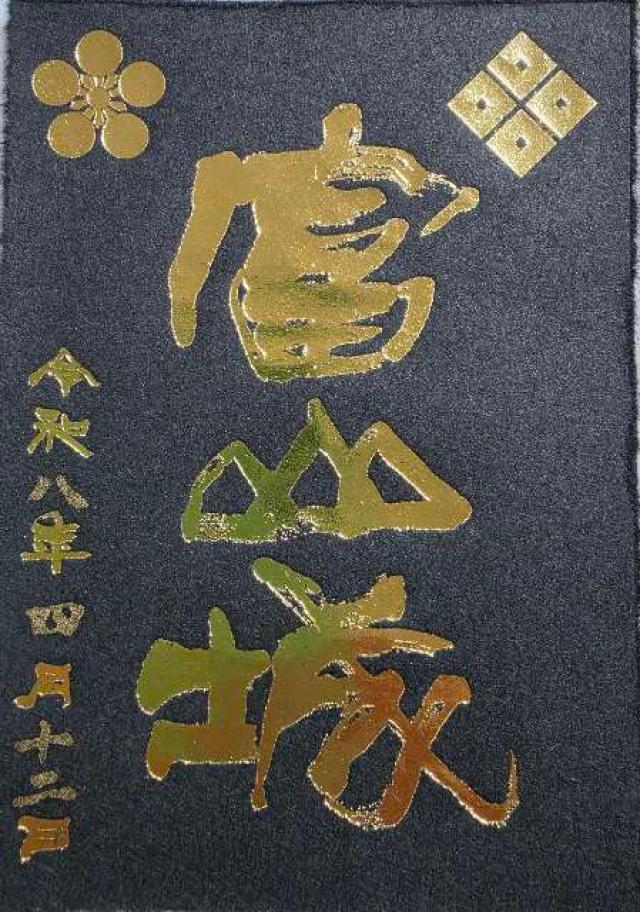 富山城
令和八年四月十二日